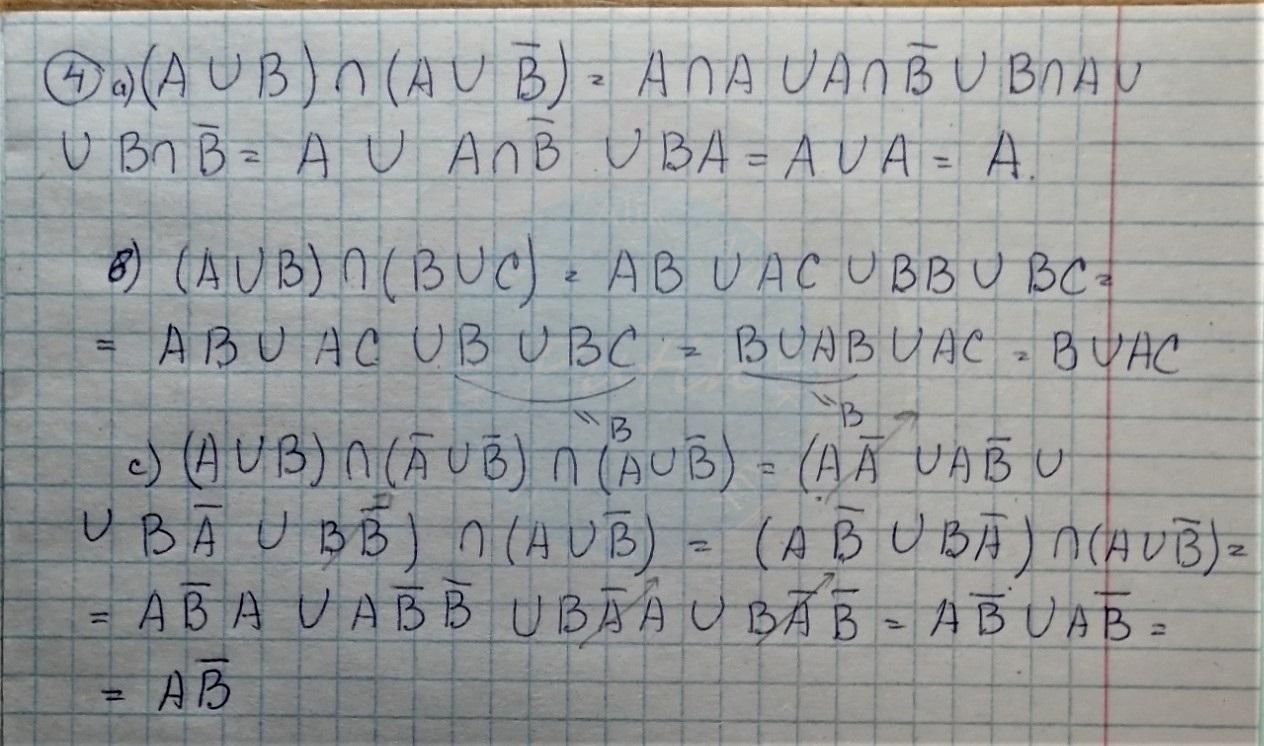 ④ а) (A ∪ B) ∩ (A ∪ B̅) = A∩A ∪ A∩B̅ ∪ B∩A ∪
∪ B∩B̅ = A ∪ A∩B̅ ∪ BA = A ∪ A = A.
в) (A∪B) ∩ (B∪C) = AB ∪ AC ∪ BB ∪ BC =
= AB ∪ AC ∪ B ∪ BC = B ∪ AB ∪ AC = B ∪ AC
"B "B
c) (A∪B) ∩ (A̅ ∪ B̅) ∩ (A∪B̅) = (AA̅ ∪ AB̅ ∪
∪ BA̅ ∪ BB̅) ∩ (A∪B̅) = (AB̅ ∪ BA̅) ∩ (A∪B̅) =
= AB̅A ∪ AB̅B̅ ∪ BA̅A ∪ BA̅B̅ = AB̅ ∪ AB̅ =
= AB̅